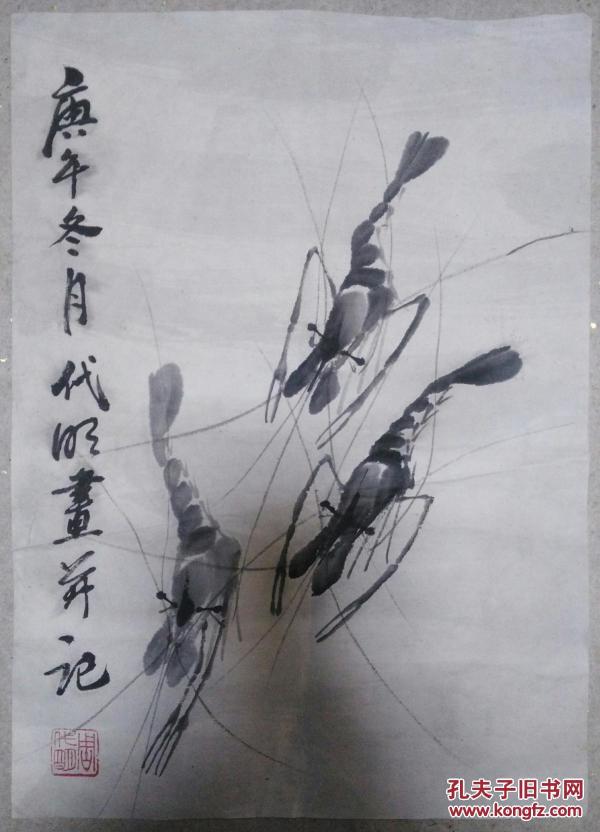 庚午冬月代明畫并记
周代明
孔夫子旧书网
www.kongfz.com